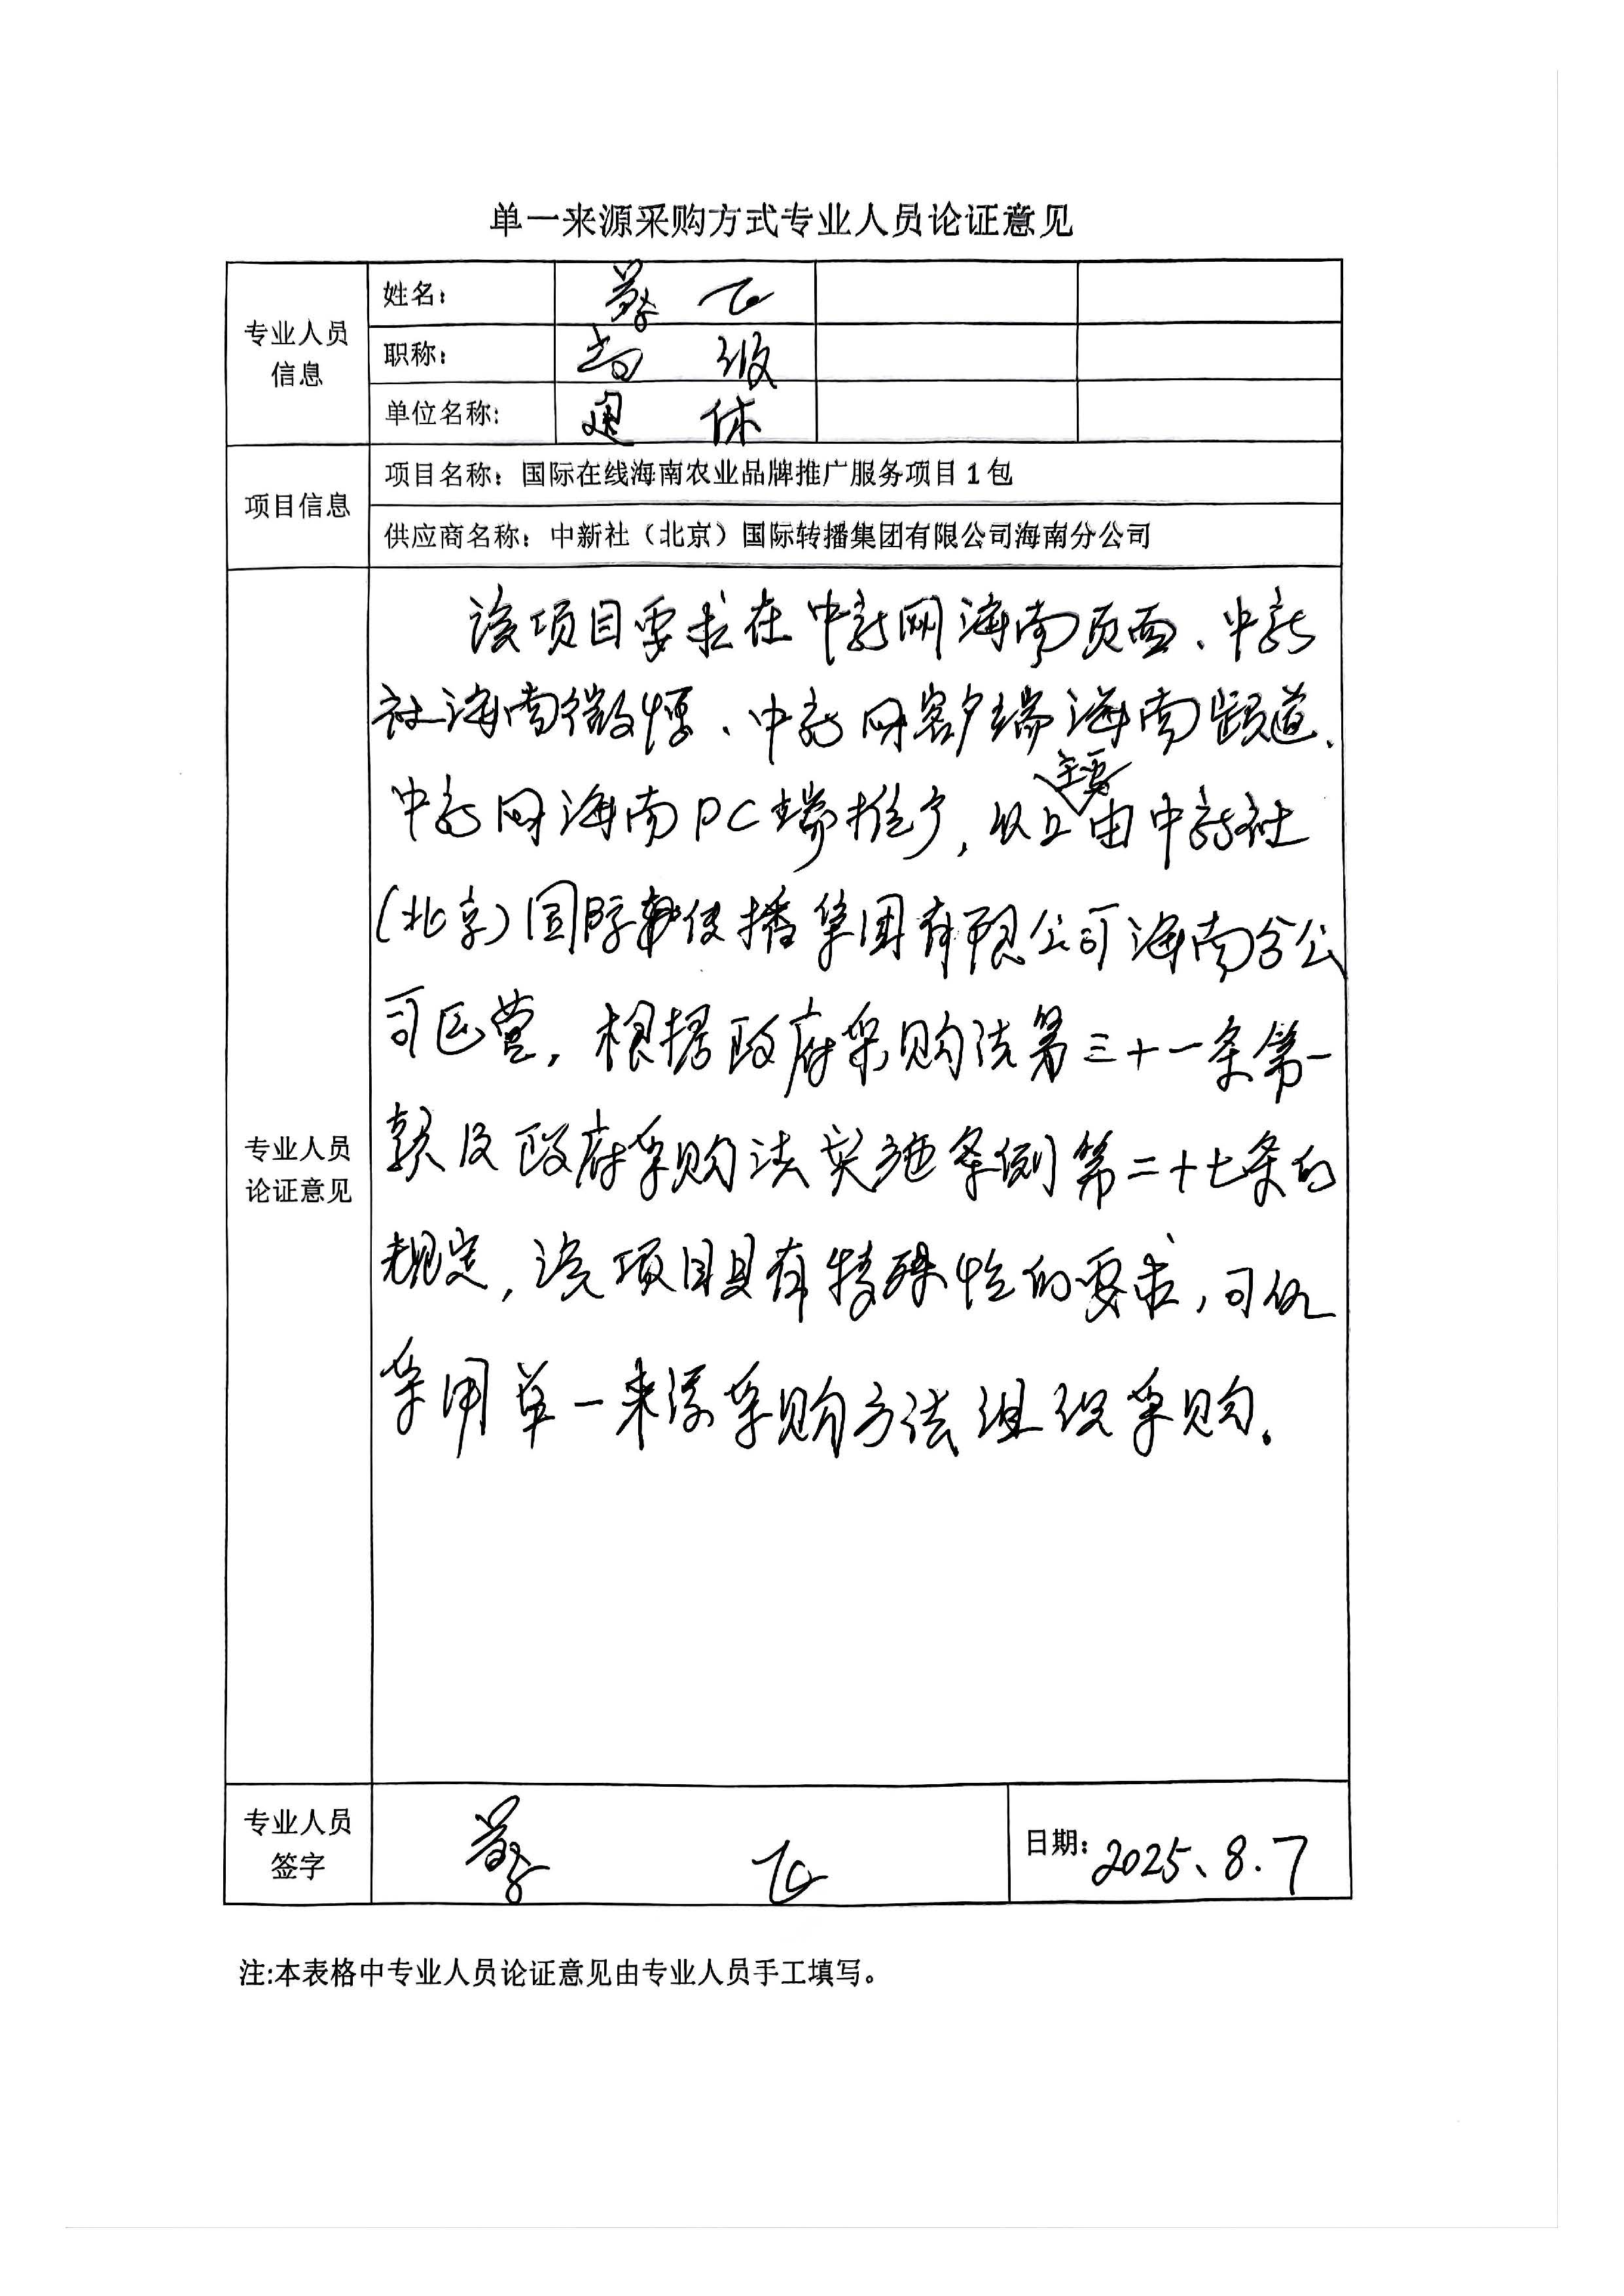 单一来源采购方式专业人员论证意见
专业人员
信息
姓名： 飞
职称： 高级
单位名称: 退休
项目信息
项目名称：国际在线海南农业品牌推广服务项目1包
供应商名称：中新社（北京）国际转播集团有限公司海南分公司
专业人员
论证意见
该项目要求在中新网海南页面、中新
社海南微博、中新网客户端海南频道、
中新网海南PC端推广，以上主要由中新社
(北京)国际传播集团有限公司海南分公
司运营，根据政府采购法第三十一条第一
款及政府采购法实施条例第二十七条的
规定，该项目具有特殊性的要求，可以
采用单一来源采购方法组织采购。
专业人员
签字
飞
日期：2025、8.7
注:本表格中专业人员论证意见由专业人员手工填写。